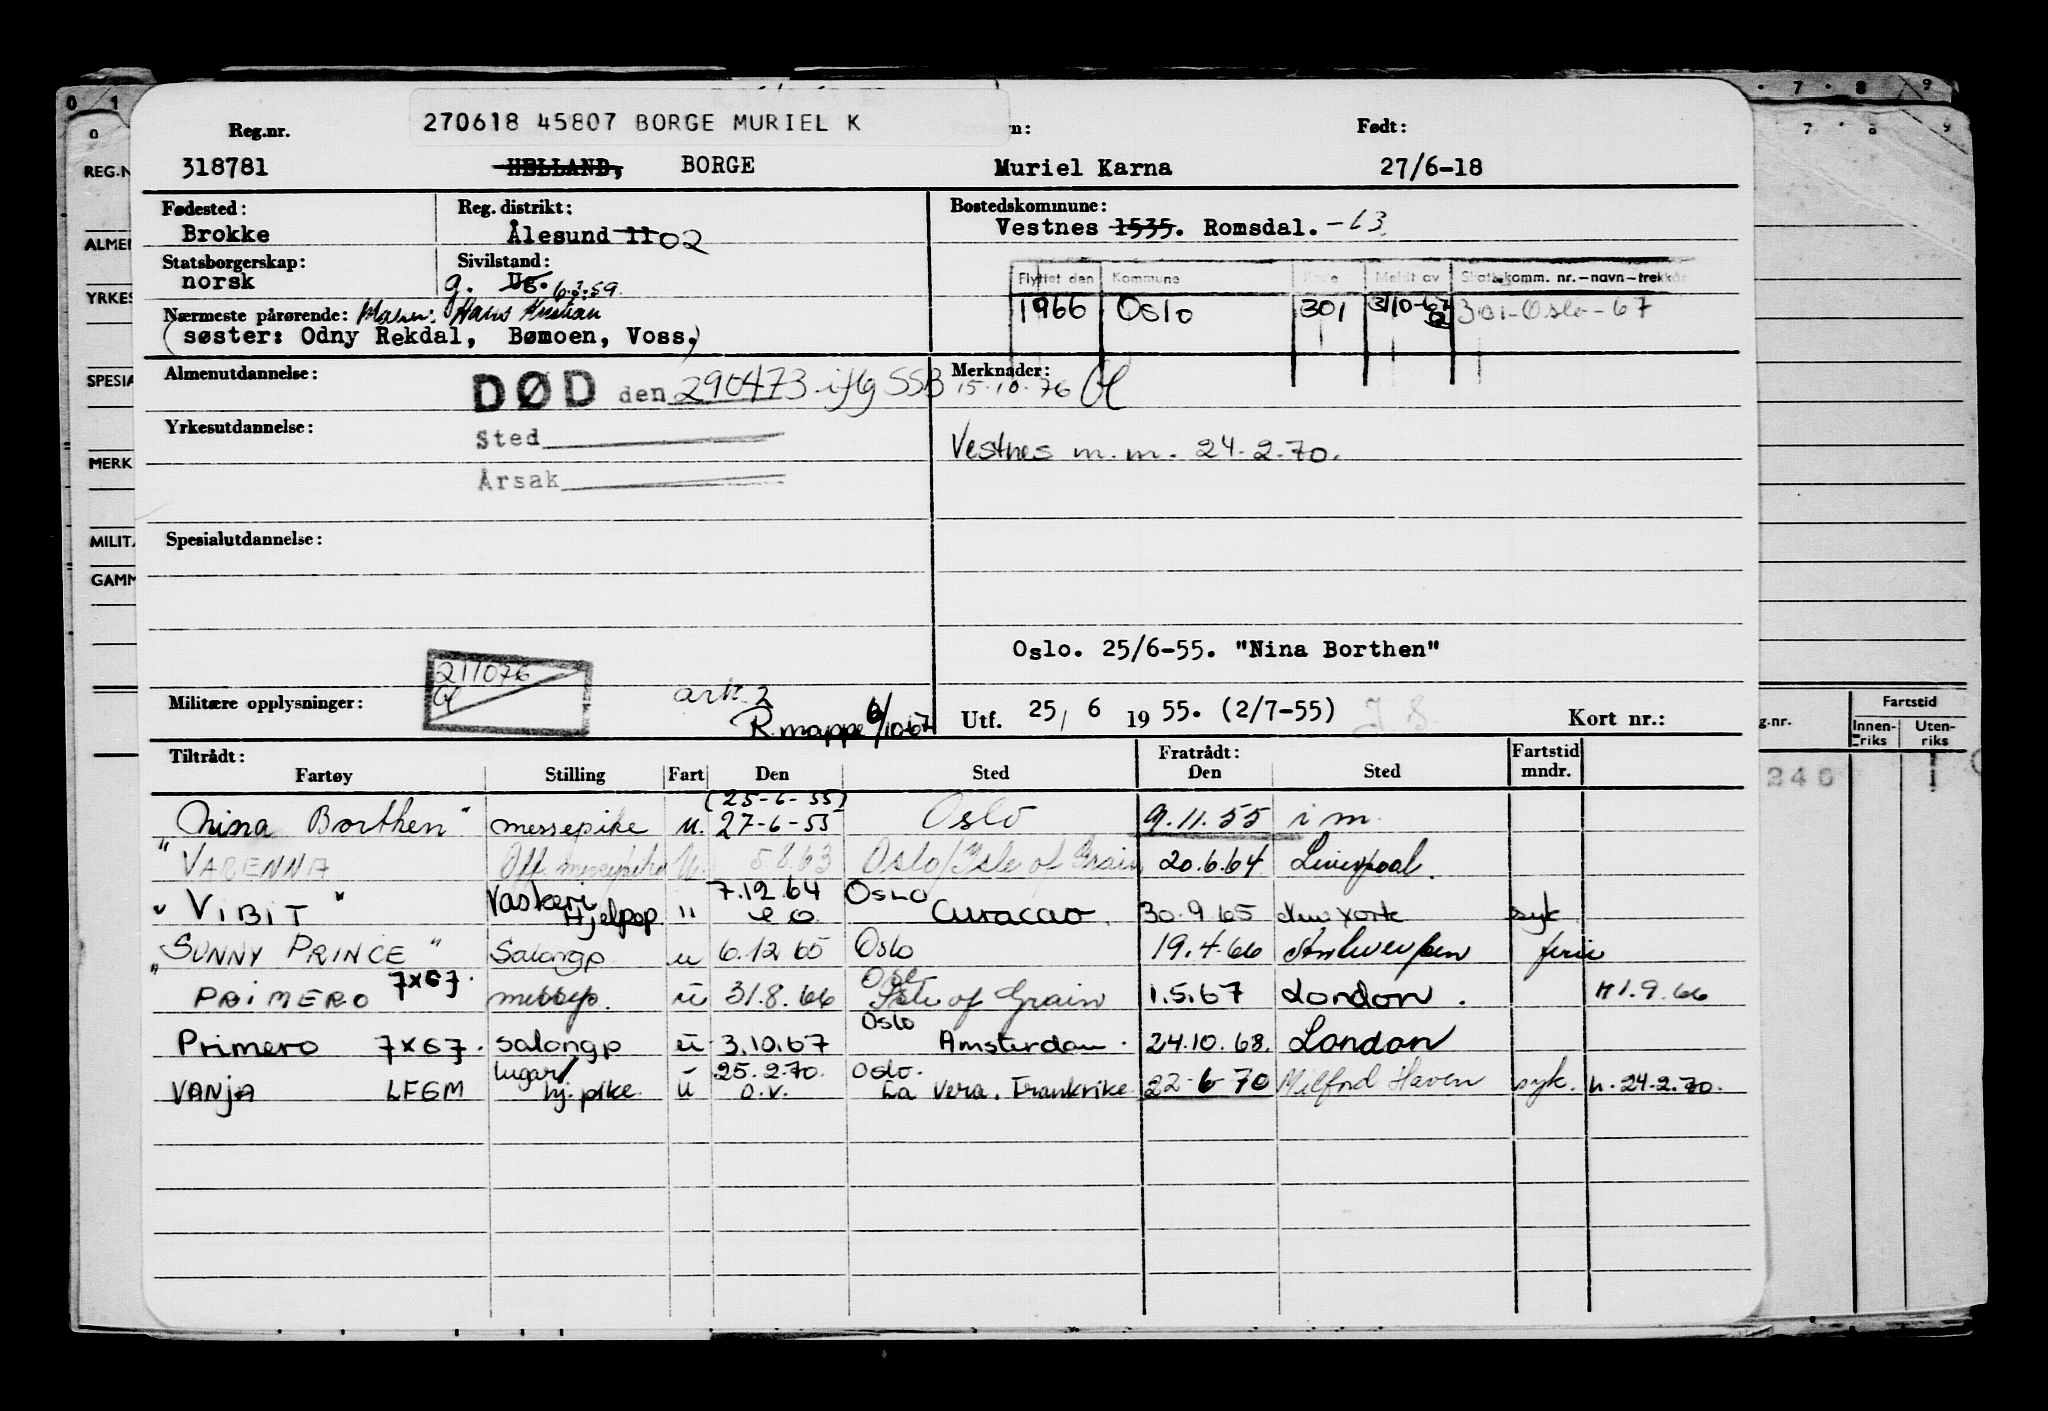 270618 45807 BORGE MURIEL K
Reg.nr. Født:
318781 HELLAND, BORGE Muriel Karna 27/6-18
Fødested: Reg. distrikt: Bostedskommune:
Brokke Ålesund 11 02 Vestnes 1535. Romsdal. -63
Statsborgerskap: Sivilstand:
norsk g. Ug. 6.3.59.
Flyttet den Kommune Kode Meldt av Skattekomm. nr.-navn-trekkår
1966 Oslo 301 3/10-67 301-Oslo-67
Nærmeste pårørende: Mann: Hans Kristian
(søster: Odny Rekdal, Bømoen, Voss.)
Almenutdannelse: Merknader:
DØD den 290473 iflg SSB 15.10.76
Yrkesutdannelse:
Sted
Vestnes m.m. 24.2.70.
Årsak
Spesialutdannelse:
Oslo. 25/6-55. "Nina Borthen"
211076
Militære opplysninger: ark. 2
R.mappe 6/10-67 Utf. 25, 6 19 55. (2/7-55) Kort nr.:
Tiltrådt: Fratrådt: Fartstid
Fartøy Stilling Fart Den Sted Den Sted mndr.
(25-6-55)
"Nina Borthen" messepike u. 27-6-55 Oslo 9.11.55 i m.
"VARENNA Off. messepike U. 5.8.63 Oslo/Isle of Grain 20.6.64 Liverpool.
"VIBIT" Vaskeri 7.12.64 Oslo
Hjelpep " Curacao. 30.9.65 New York syk
"SUNNY PRINCE" Salongp u 6.12.65 Oslo 19.4.66 Antwerpen ferie
"PRIMERO 7x67. messep. u 31.8.66 Oslo
Isle of Grain 1.5.67 London. 1.9.66
Primero 7x67. salongp u 3.10.67 Oslo
Amsterdam. 24.10.68. London
VANJA LFGM lugar/ 25.2.70. Oslo.
hj. pike. u o.v. La Vera, Frankrike. 22-6-70 Milford Haven syk. h. 24.2.70.
0 1 7 8 9
REG.N
ALMEN
YRKES
SPESIA
MERK
MILIT
GAMM
g.nr.
Fartstid
Innenriks
Utenriks
240